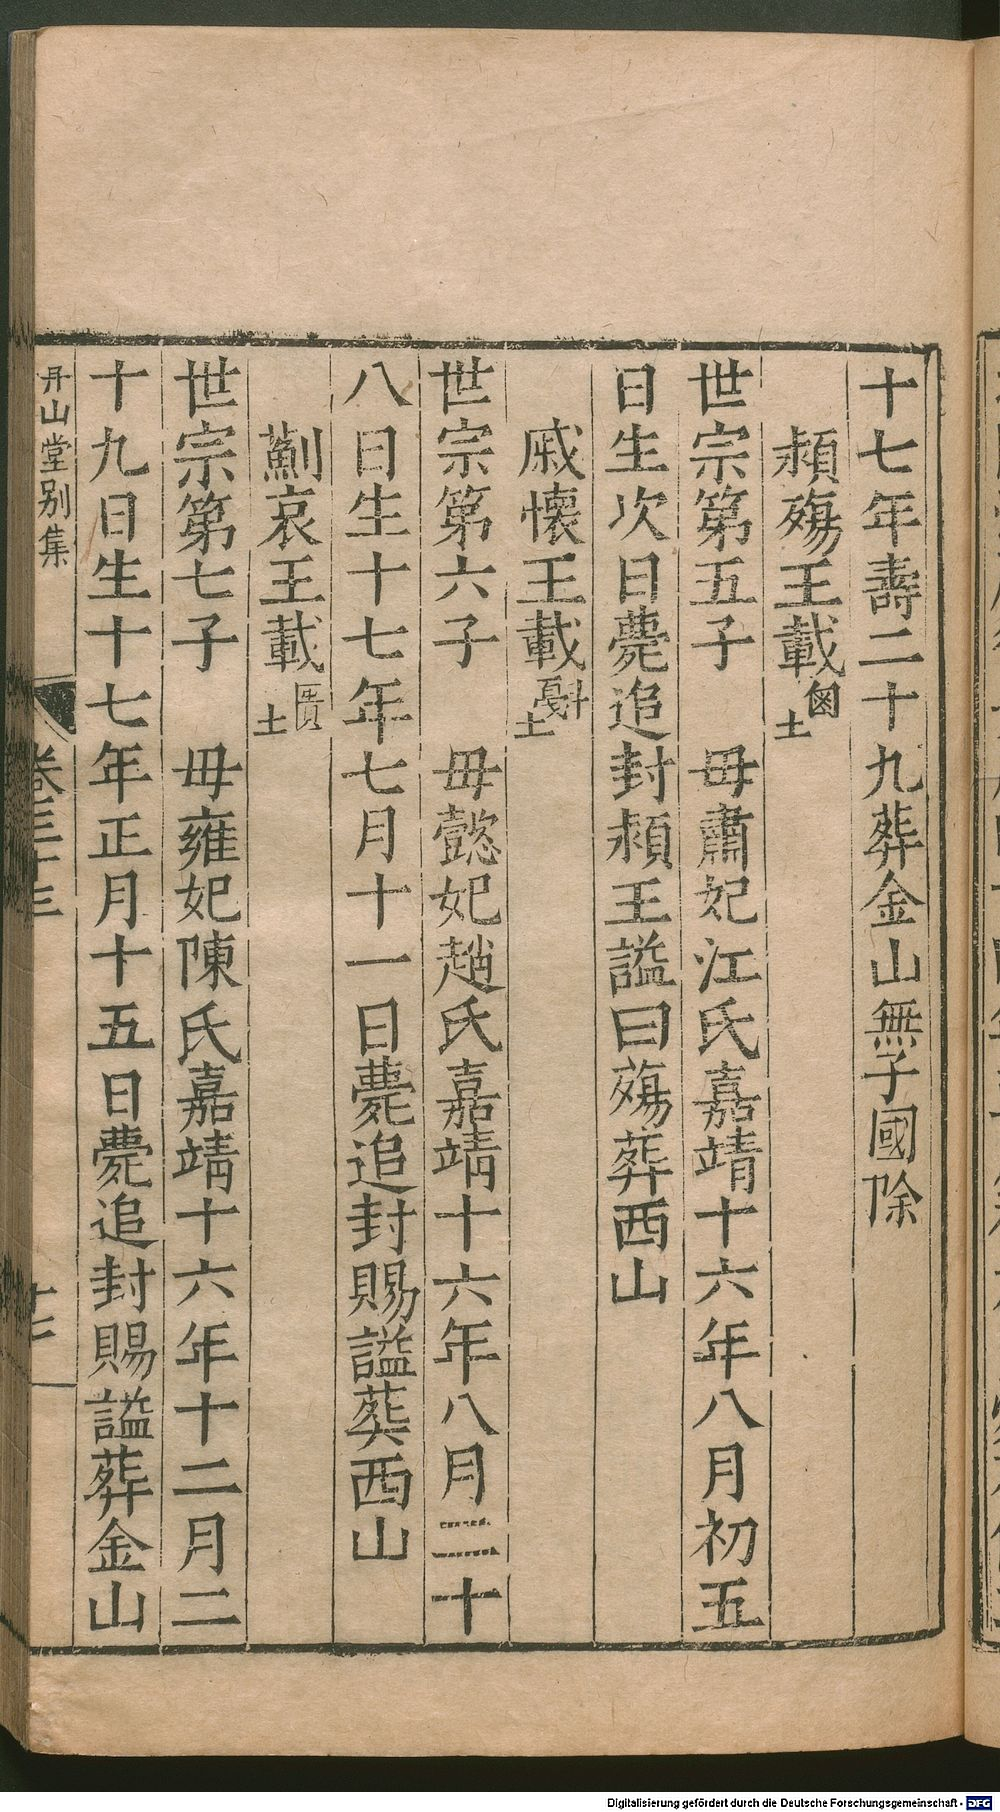 十七年壽二十九葬金山無子國除
頳殤王載
世宗第五子　毋肅妃江氏嘉靖十六年八月初五
日生次日薨追封頳王謚曰殤葬西山
戚懷王載
世宗第六子　毋懿妃趙氏嘉靖十六年八月二十
八日生十七年七月十一日薨追封賜謚葬西山
薊哀王載
世宗第七子　毋雍妃陳氏嘉靖十六年十二月二
十九日生十七年正月十五日薨追封賜謚葬金山
弇山堂别集　卷三十三
Digitalisierung gefördert durch die Deutsche Forschungsgemeinschaft - DFG